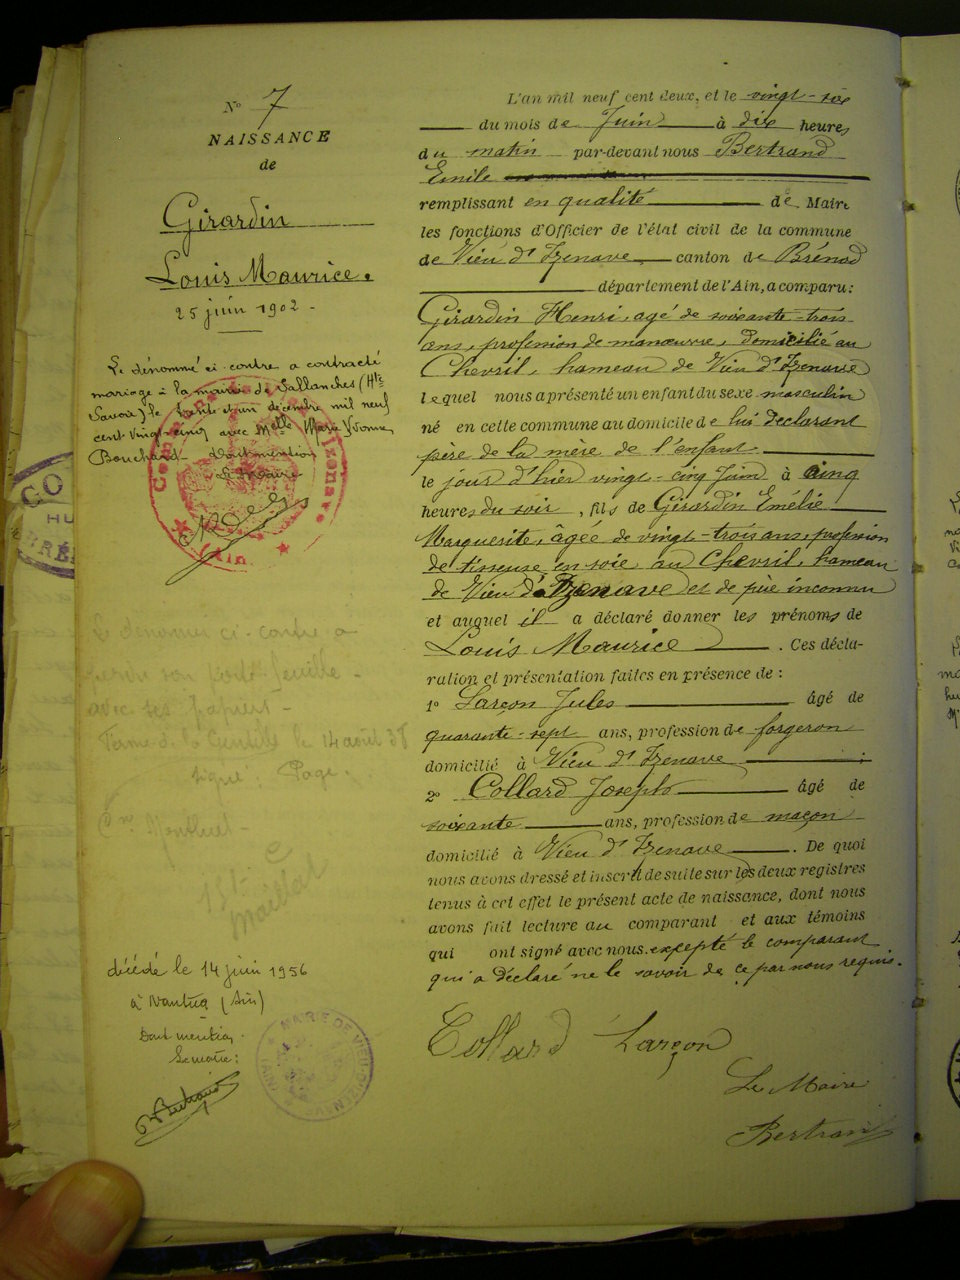 N° 7
NAISSANCE
de
Girardin
Louis Maurice.
25 juin 1902 -
Le dénommé ci-contre a contracté
mariage à la mairie de Sallanches (Hte
Savoie) le trente et un décembre mil neuf
cent vingt-cinq avec Melle Marie Yvonne
Bouchard - dont mention
Le Maire
le dénommé ci-contre a
perdu son portefeuille -
avec ses papiers -
le 14 août 38
signé Page.
décédé le 14 juin 1956
à Nantua (Ain)
Dont mention.
Le maire:
Bertrand
MAIRIE DE VIEU-D'IZENAVE (AIN)
L'an mil neuf cent deux, et le vingt-six
du mois de Juin à dix heures
du matin par-devant nous Bertrand
Emile
remplissant en qualité de Maire
les fonctions d'Officier de l'état civil de la commune
de Vieu d'Izenave canton de Brénod
département de l'Ain, a comparu:
Girardin Henri, agé de soixante-trois
ans, profession de manœuvre, domicilié au
Chevril, hameau de Vieu d'Izenave
lequel nous a présenté un enfant du sexe masculin
né en cette commune au domicile de lui déclarant
père de la mère de l'enfant
le jour d'hier vingt-cinq Juin à cinq
heures du soir, fils de Girardin Emélie
Marguerite, âgée de vingt-trois ans, profession
de tisseuse en soie au Chevril, hameau
de Vieu d'Izenave et de père inconnu
et auquel il a déclaré donner les prénoms de
Louis Maurice. Ces décla-
ration et présentation faites en présence de :
1° Larçon Jules âgé de
quarante-sept ans, profession de forgeron
domicilié à Vieu d'Izenave ;
2° Collard Joseph âgé de
soixante ans, profession de maçon
domicilié à Vieu d'Izenave. De quoi
nous avons dressé et inscrit de suite sur les deux registres
tenus à cet effet le présent acte de naissance, dont nous
avons fait lecture au comparant et aux témoins
qui ont signé avec nous excepté le comparant
qui a déclaré ne le savoir de ce par nous requis.
Collard Larçon
Le Maire
Bertrand